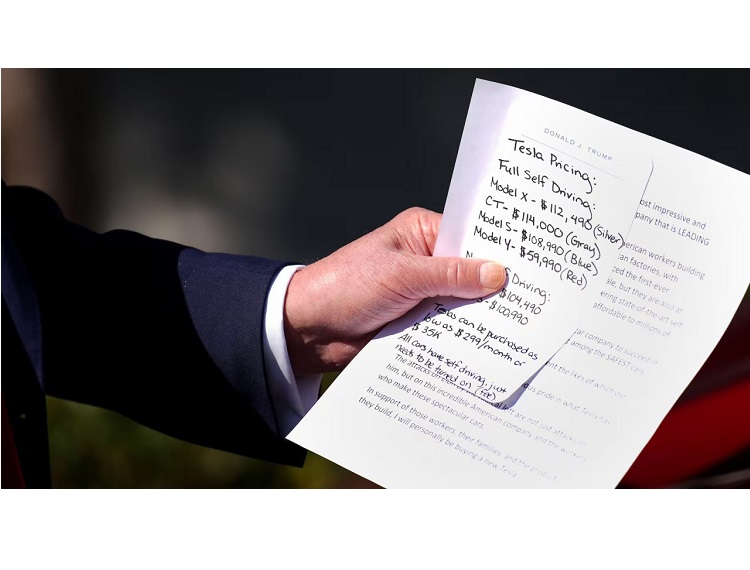 DONALD J. TRUMP
Tesla Pricing:
Full Self Driving:
Model X - $112,490 (Silver)
CT - $114,000 (Gray)
Model S - $108,990 (Blue)
Model Y - $59,990 (Red)
Driving:
$104,490
S - $100,990
Teslas can be purchased as
low as $299/month or
$35K
All cars have self driving, just
needs to be turned on. (fee)
ost impressive and
pany that is LEADING
erican workers building
can factories, with
ced the first-ever
ale, but they are also at
ering state-of-the-art self
affordable to millions of
ar company to succeed in
among the SAFEST cars
ent the likes of which our
pride in what Tesla has
The attacks on
left are not just attacks on
him, but on this incredible American company and the workers
who make these spectacular cars.
In support of those workers, their families, and the product
they build, I will personally be buying a new Tesla